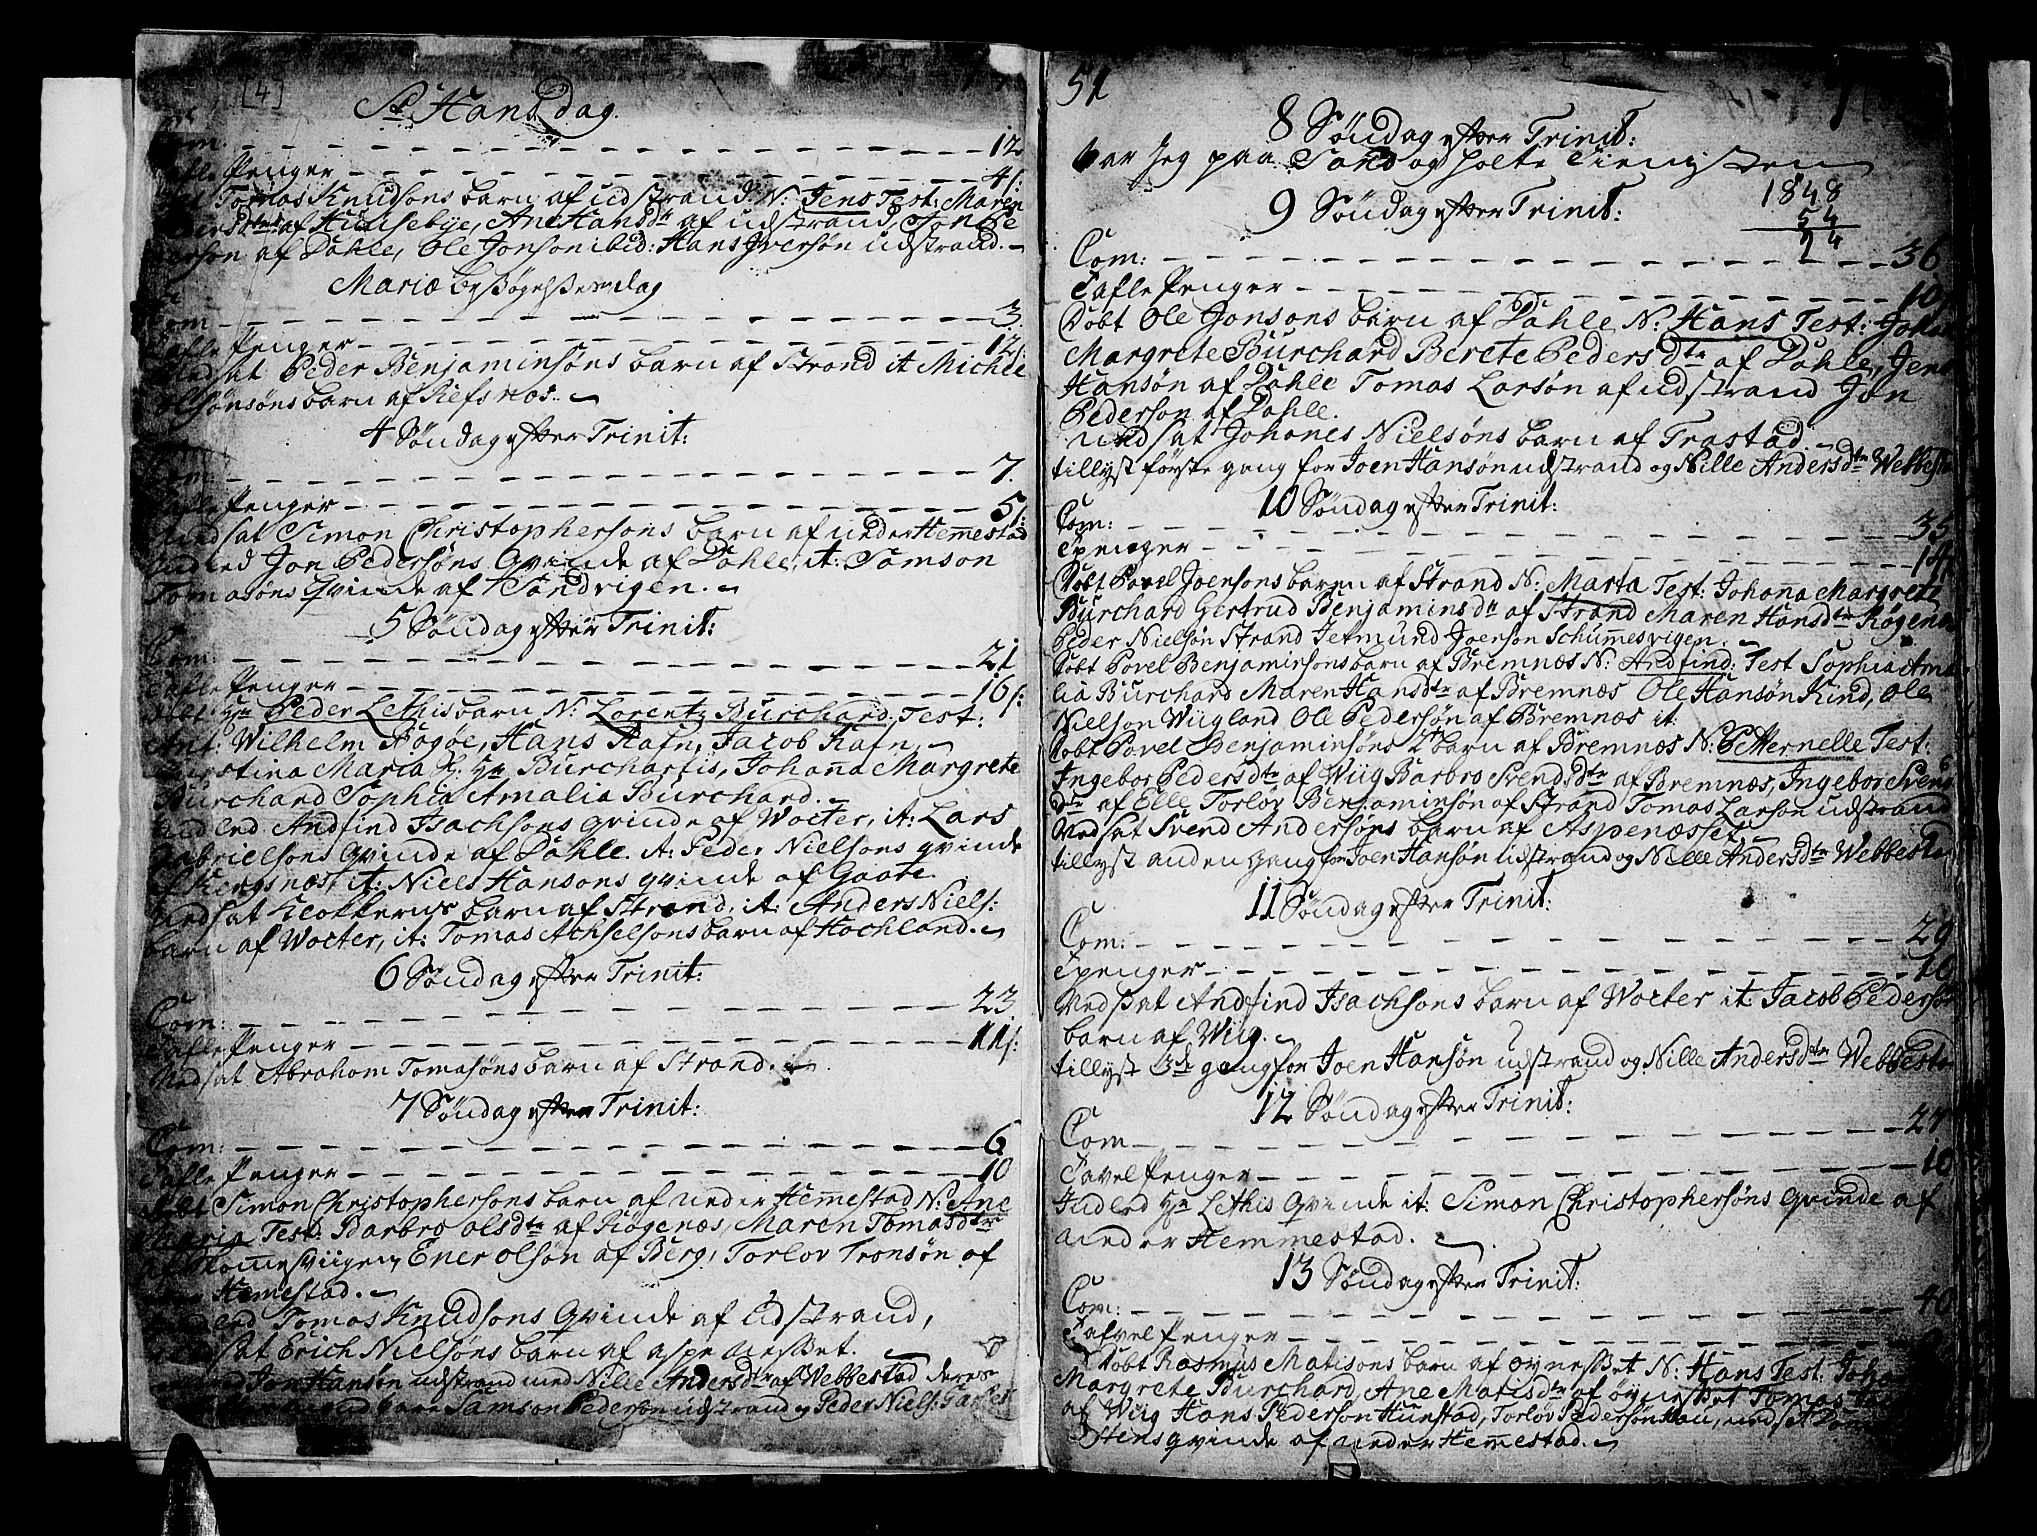 [4]
St Hans dag.
Com: 12
Tafle Penger 4 s:
Tomas Knudsons barn af udstrand: N: Jens Test: Maren
af Husebye, Ane Hansdtr af udstrand, Jon Pe
derson af Dahle, Ole Jonson ibid: Hans Iversøn udstrand.
Mariæ besøgelsens dag
Com 3.
Tafle Penger 12 s:
Indsat Peder Benjaminsøns barn af Strand it Michle
olsønsøns barn af Refsnos.
4 Søndag efter Trinit:
Com: 7.
Tafle Penger 5 s:
Indsat Simon Christophersons barn af under Hemestad
Indled Jon Pedersøns Qvinde af Dahle, it: Samson
Tomasøns Qvinde af Sandvigen.
5 Søndag efter Trinit:
Com: 21
Tafle Penger 16 s:
Døbt Hr Peder Lethis barn N: Lorentz Burchard. Test:
Ant: Wilhelm Høgøe, Hans Rafn, Jacob Rafn
Christina Maria Sl: Hr Burchartis, Johana Margrete
Burchard Sophia Amalia Burchard.
Indled Andfind Isachsons qvinde af Wolter, it: Lars
Gabrielsons qvinde af Dahle. it: Peder Nielsons qvinde
af Kongsnæs it: Niels Hansons qvinde af Gaate.
Indsat Klokkerns barn af Strand, it: Anders Niels:
barn af Wolter, it: Tomas Achselsons barn af Hochland.
6 Søndag efter Trinit:
Com: 23.
Tafle Penger 11 s:
Indsat Abraham Tomasøns barn af Strand.
7 Søndag efter Trinit:
Com: 6
Tafle Penger 10
Døbt Simon Christophersons barn af under Hemestad N: Ane
Maria Test: Barbro olsdtr af Røgenæs, Maren Tomasdtr
af Skomesviigen, Ener olsøn af Berg, Torlov Tronsøn af
Hemestad.
Indled Tomas Knudsons Qvinde af Udstrand,
Indsat Erich Nielsøns barn af aspenesset.
Jon Hansøn udstrand med Nille Andersdtr af Webbestad deres
Samson Pederson udstrand og Peder Niels:
51
8 Søndag efter Trinit:
var Jeg paa Sand og holte Tieniesten
9 Søndag efter Trinit:
1848
54
24
Com: 36
Tafle Penger 10
Døbt Ole Jonsons barn af Dahle N: Hans Test: Joha
Margrete Burchard Berete Pedersdtr af Dahle, Jens
Hansøn af Dahle Tomas Larsøn af udstrand Jon
Pederson af Dahle.
indsat Johanes Nielsøns barn af Trastad.
tillyst første gang for Joen Hansøn udstrand og Nille Andersdtr Webbesta
10 Søndag efter Trinit:
Com: 35
Tpenger 14
Døbt Povel Joensons baren af Strand N: Marta Test: Johana Margrete
Burchard Gertrud Benjaminsdtr af Strand Maren Hansdtr Røgenæs
Peder Nielsøn Strand Jetmund Joerson Schumesvigen.
Døbt Povel Benjaminsons barn af Bremnæs N: Andfind: Test Sophia Ama
lia Burchard Maren Hansdtr af Bremnæs Ole Hansøn Kind, Ole
Nielson Wiigland Ole Pedersøn af Bremnæs it:
Døbt Povel Benjaminsøns 2t barn af Bremnæs N: Petternelle Test:
Ingebor Pedersdtr af Wiig Barbro Svendsdtr af Bremnæs, Ingebor Svend
dtr af Elle Torløv Benjaminsøn af Strand Tomas Larson udstrand
Indsat Svend Andersøns barn af Aspenæsset
tillyst anden gang for Joen Hansøn udstrand og Nille Andersdtr Webbesta
11 Søndag efter Trinit:
Com: 29
Tpenger 16
Indsat Andfind Isachsons barn af Wolter it: Jacob Pedersøns
barn af Wiig.
tillyst 3de gang for Joen Hansøn udstrand og Nille Andersdtr Webbesta
12 Søndag efter Trinit:
Com 27
Tavel Penger 10
Indled Hr Lethis Qvinde it: Simon Christophersøns qvinde af
under Hemmestad.
13 Søndag efter Trinit:
Com: 40
Tafvel Penger
Døbt Rasmus Matisons barn af øynesset N: Hans Test: Joha
Margrete Burchard, Ane Matisdtr af øynesset Tomas
af Wiig Hans Pederson Hunstad, Torlov Pedersøn Hau, indsat
Stens qvinde af under Hemestad.